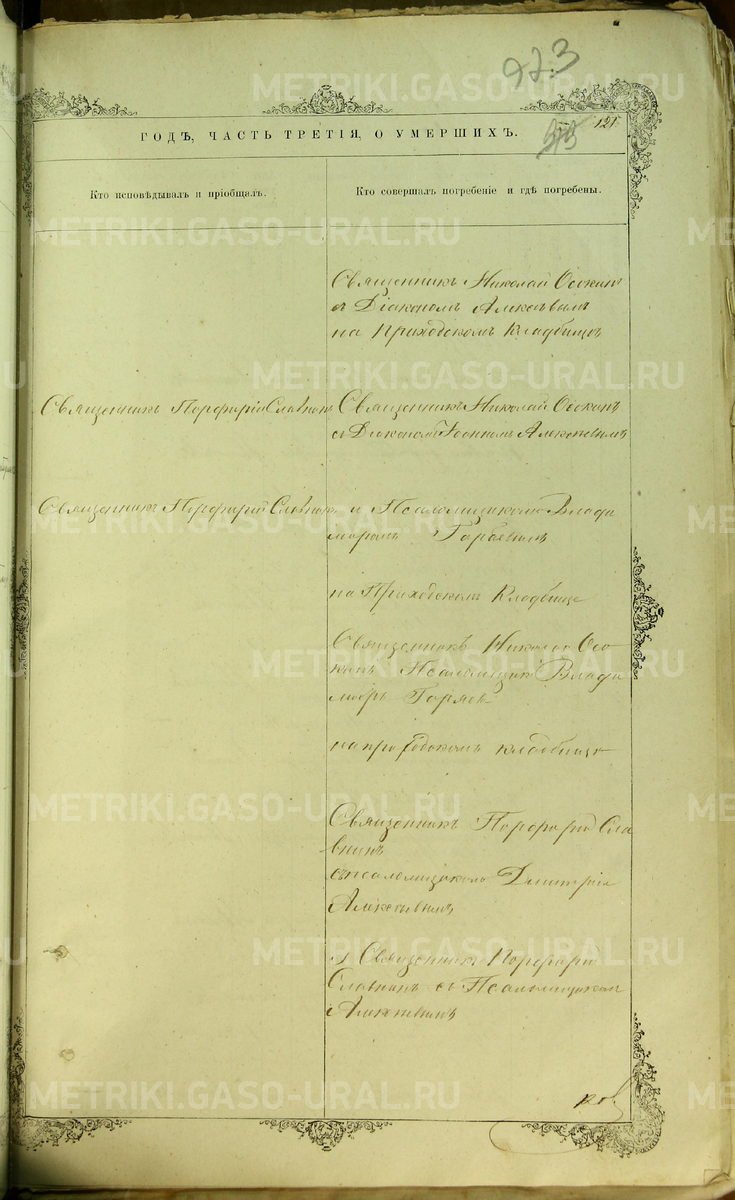 973
121
ГОДЪ, ЧАСТЬ ТРЕТІЯ, О УМЕРШИХЪ.
Кто исповѣдывалъ и пріобщалъ.
Кто совершалъ погребеніе и гдѣ погребены.
Священникъ Николай Осокинъ
съ Діакономъ Алексѣевымъ
на Приходскомъ Кладбищѣ
Священникъ Порфирій Славнинъ
Священникъ Николай Осокинъ
съ Діакономъ Іоанномъ Алексѣевымъ
Священникъ Порфирій Славнинъ
и Псаломщикомъ Влади
миромъ
на Приходскомъ Кладбище
Священникъ Николай Осо
кинъ Псаломщикъ Влади
миръ
на приходскомъ кладбище
Священникъ Порфирій Сла
внинъ
съ псаломщикомъ Дмитріемъ
Алексѣевымъ
Священникъ Порфирій
Славнинъ съ Псаломщикомъ
Алексѣевымъ
METRIKI.GASO-URAL.RU